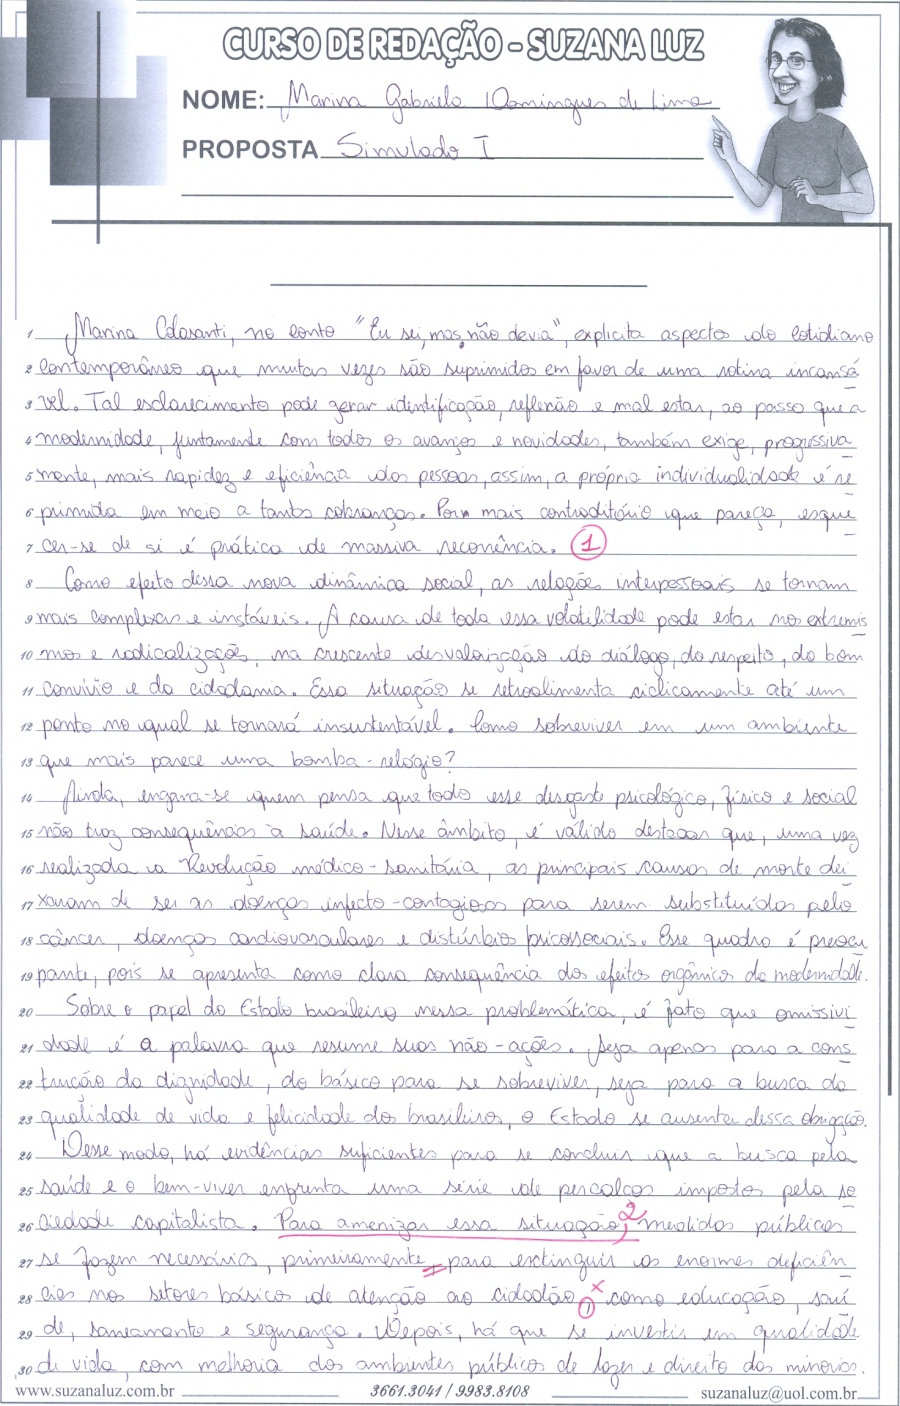 CURSO DE REDAÇÃO - SUZANA LUZ
NOME: Marina Gabriela Domingues de Lima
PROPOSTA Simulado I
1 Marina Colasanti, no conto "Eu sei, mas não devia", explicita aspectos do cotidiano
2 contemporâneo que muitas vezes são suprimidos em favor de uma rotina incansá
3 vel. Tal esclarecimento pode gerar identificação, reflexão e mal estar, ao passo que a
4 modernidade, juntamente com todos os avanços e novidades, também exige, progressiva
5 mente, mais rapidez e eficiência das pessoas, assim, a própria individualidade é re
6 primida em meio a tantas cobranças. Por mais contraditório que pareça, esque
7 cer-se de si é prática de massiva recorrência. 1
8 Como efeito dessa nova dinâmica social, as relações interpessoais se tornam
9 mais complexas e instáveis. A causa de toda essa volatilidade pode estar nos extremis
10 mos e radicalizações, na crescente desvalorização do diálogo, do respeito, do bom
11 convívio e da cidadania. Essa situação se retroalimenta ciclicamente até um
12 ponto no qual se tornará insustentável. Como sobreviver em um ambiente
13 que mais parece uma bomba-relógio?
14 Ainda, engana-se quem pensa que todo esse desgaste psicológico, físico e social
15 não traz consequências à saúde. Nesse âmbito, é válido destacar que, uma vez
16 realizada a Revolução médico-sanitária, as principais causas de morte dei
17 xaram de ser as doenças infecto-contagiosas para serem substituídas pelo
18 câncer, doenças cardiovasculares e distúrbios psicossociais. Esse quadro é preocu
19 pante, pois se apresenta como clara consequência dos efeitos orgânicos da modernidade.
20 Sobre o papel do Estado brasileiro nessa problemática, é fato que omissivi
21 dade é a palavra que resume suas não-ações. Seja apenas para a cons
22 trução da dignidade, do básico para se sobreviver, seja para a busca da
23 qualidade de vida e felicidade dos brasileiros, o Estado se ausenta dessa obrigação.
24 Desse modo, há evidências suficientes para se concluir que a busca pela
25 saúde e o bem-viver enfrenta uma série de percalços impostos pela so
26 ciedade capitalista. Para amenizar essa situação, 2 medidas públicas
27 se fazem necessárias, primeiramente para extinguir as enormes deficiên
28 cias nos setores básicos de atenção ao cidadão 1 x como educação, saú
29 de, saneamento e segurança. Depois, há que se investir em qualidade
30 de vida, com melhoria dos ambientes públicos de lazer e direito das minorias.
www.suzanaluz.com.br 3661.3041 / 9983.8108 suzanaluz@uol.com.br